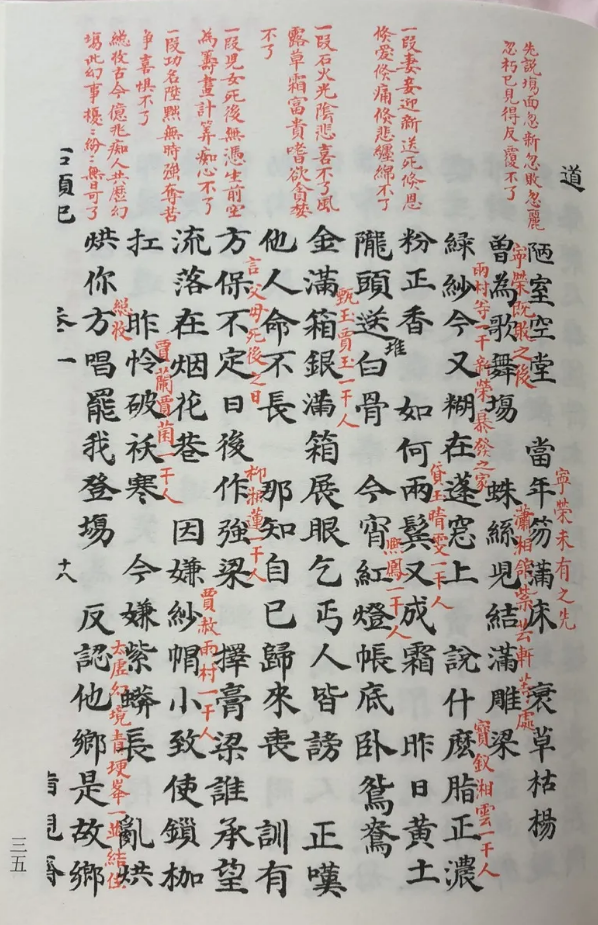 先說場面忽新忽敗忽麗
忽朽已見得反覆不了
一段妻妾迎新送死倏恩
倏愛倏痛倏悲纏綿不了
一段石火光陰悲喜不了風
露草霜富貴嗜欲貪婪
不了
一段兒女死後無憑生前空
為籌畫計算痴心不了
一段功名陞黜無時強奪苦
爭喜惧不了
總收古今億兆痴人共歷幻
場此幻事擾〻紛〻無日可了
道
寧榮未有之先
陋室空堂 當年笏滿床 衰草枯楊
寧榮既敗之後
瀟湘舘紫芸軒等處
曾為歌舞場 蛛絲兒結滿雕梁
雨村等一干新榮暴發之家
寶釵湘雲一干人
綠紗今又糊在蓬窓上 說什麽脂正濃
黛玉晴雯一干人
粉正香 如何兩鬢又成霜 昨日黃土
堆
熙鳳一干人
隴頭送白骨 今宵紅燈帳底卧鴛鴦
甄玉賈玉一干人
金滿箱銀滿箱展眼乞丐人皆謗 正嘆
他人命不長 那知自己歸來喪 訓有
言父母死後之日
柳湘蓮一干人
方保不定日後作強梁 擇膏梁誰承望
賈赦雨村一干人
流落在烟花巷 因嫌紗帽小致使鎖枷
賈蘭賈菌一干人
扛 昨憐破袄寒 今嫌紫蟒長 亂烘
總收
太虛幻境青埂峯一並結住
烘你方唱罷我登場 反認他鄉是故鄉
石頭記 卷一 十八
三五